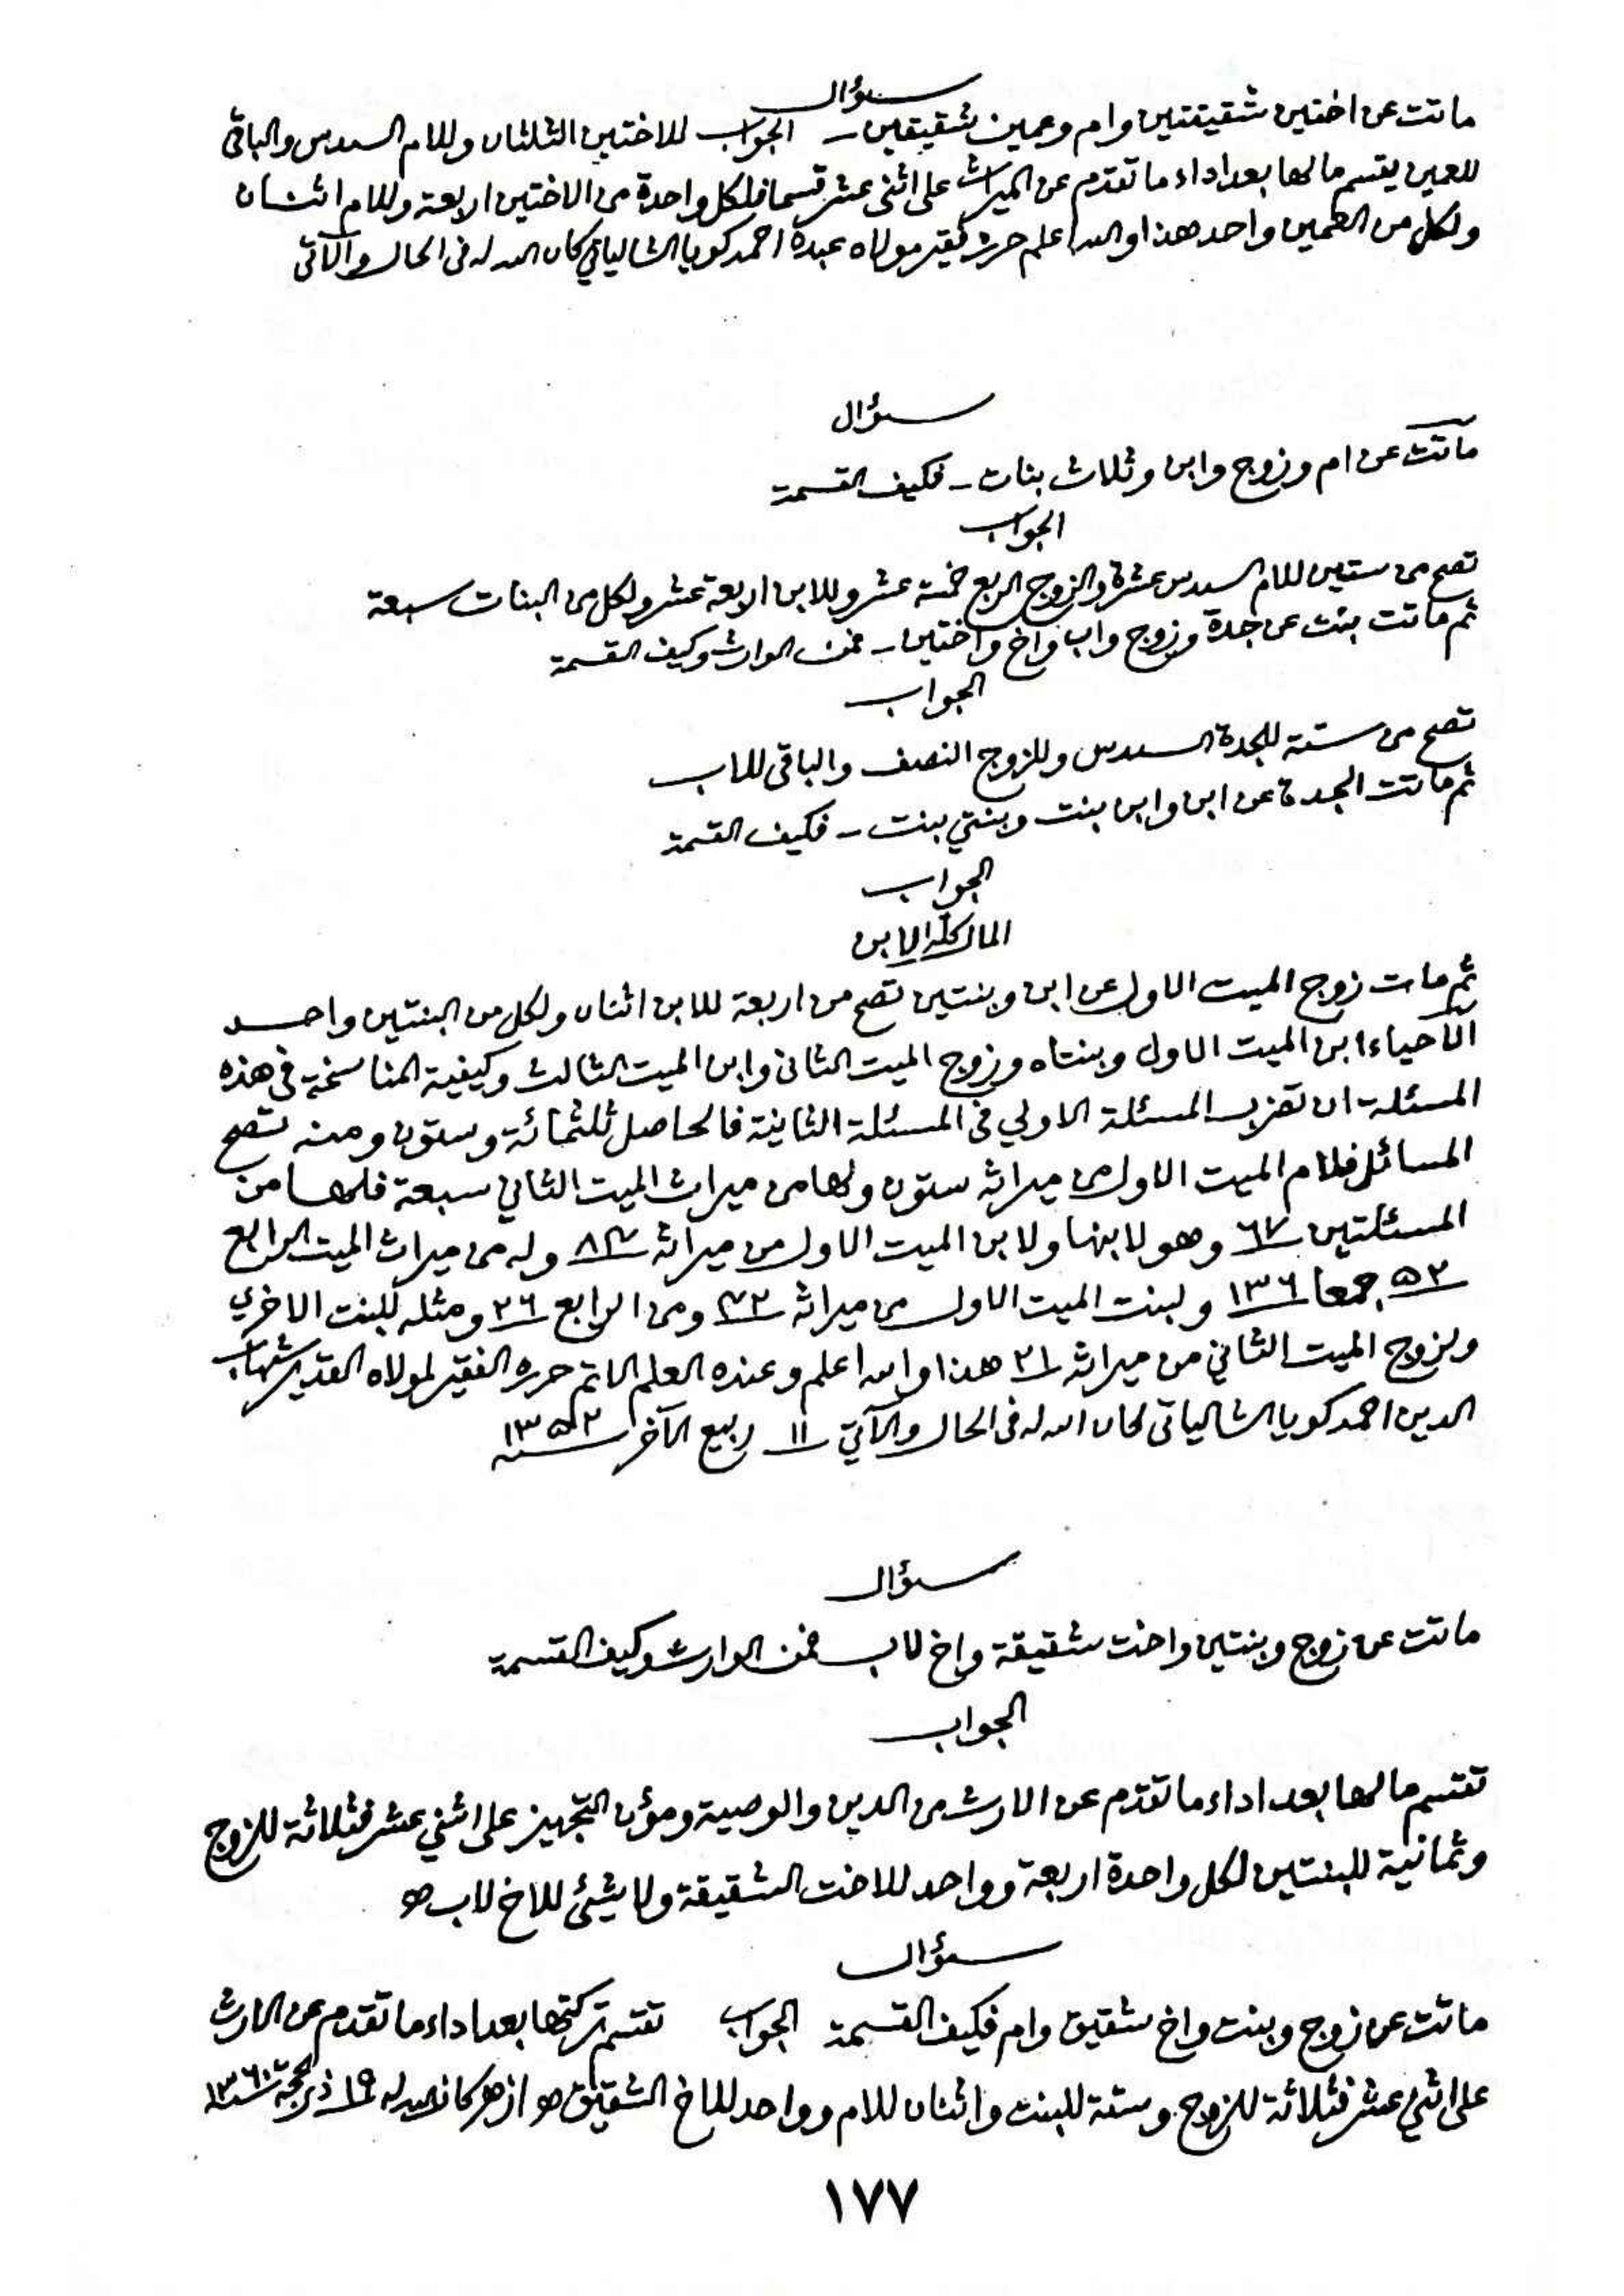 سؤال
ماتت عن اختين شقيقتين وام وعمين شقيقين ـ الجواب للاختين الثلثان وللام السدس والباقي
للعمين يقسم مالها بعد اداء ما تقدم عن الميراث على اثنى عشر قسما فلكل واحدة من الاختين اربعة وللام اثنان
ولكل من العمين واحد هذا والله اعلم حرره فقير مولاه عبده احمد كويا الشالياتي كان الله له في الحال والآتي
سؤال
ماتت عن ام وزوج وابن وثلاث بنات ـ فكيف القسمة
الجواب
تصح من ستين للام السدس عشرة وللزوج الربع خمسة عشر وللابن اربعة عشر ولكل من البنات سبعة
ثم ماتت بنت عن جدة وزوج واب واخ واختين ـ فمن الوارث وكيف القسمة
الجواب
تصح من ستة للجدة السدس وللزوج النصف والباقي للاب
ثم ماتت الجدة عن ابن وابن بنت وبنتي بنت ـ فكيف القسمة
الجواب
المال كله للابن
ثم مات زوج الميت الاول عن ابن وبنتين تصح من اربعة للابن اثنان ولكل من البنتين واحد
الأحياء ابن الميت الاول وبنتاه وزوج الميت الثاني وابن الميت الثالث وكيفية المناسخة في هذه
المسئلة ان تضرب المسئلة الاولي في المسئلة الثانية فالحاصل ثلثمائة وستون ومنه تصح
المسائل فلام الميت الاول من ميراثه ستون ولها من ميراث الميت الثاني سبعة فلها من
المسئلتين ٦٧ وهو لابنها ولابن الميت الاول من ميراثه ٨٤ وله من ميراث الميت الرابع
٥٢ جمعا ١٣٦ ولبنت الميت الاول من ميراثه ٤٢ ومن الرابع ٢٦ ومثله للبنت الاخري
ولزوج الميت الثاني من ميراثه ٢١ هذا والله اعلم وعنده العلم الاتم حرره الفقير لمولاه القدير شهاب
الدين احمد كويا الشالياتي كان الله له في الحال والآتي ١١ ربيع الآخر سنة ١٣٥٢
سؤال
ماتت عن زوج وبنتين واخت شقيقة واخ لاب فمن الوارث وكيف القسمة
الجواب
تقتسم مالها بعد اداء ما تقدم عن الارث من الدين والوصية ومؤن التجهيز على اثني عشر فثلاثة للزوج
وثمانية للبنتين لكل واحدة اربعة وواحد للاخت الشقيقة ولا شيئ للاخ لاب
سؤال
ماتت عن زوج وبنت واخ شقيق وام فكيف القسمة الجواب تقتسم تركتها بعد اداء ما تقدم عن الارث
على اثني عشر فثلاثة للزوج وستة للبنت واثنان للام وواحد للاخ الشقيق ازهر كان الله له ١٩ ذي الحجة
١٧٧